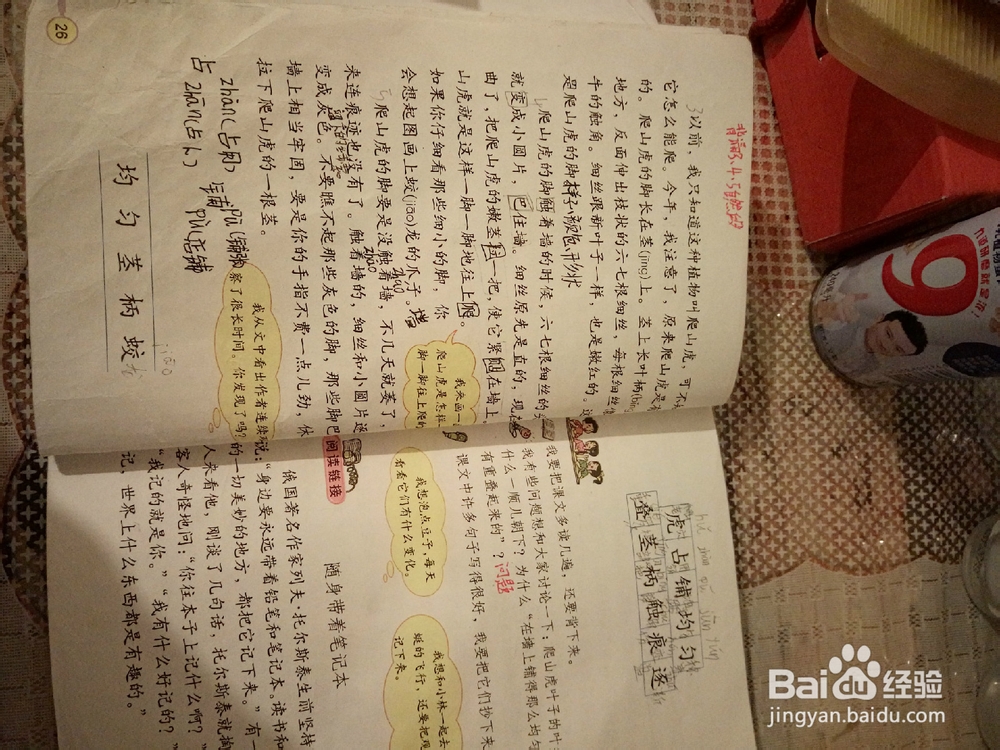 背诵3、4、5自然段
3以前，我只知道这种植物叫爬山虎，可不
它怎么能爬。今年，我注意了，原来爬山虎是有
的。爬山虎的脚长在茎(jīng)上。茎上长叶柄(bǐng
地方，反面伸出枝状的六七根细丝，每根细丝像
牛的触角。细丝跟新叶子一样，也是嫩红的。这
是爬山虎的脚
样子和颜色 形状
爬山虎的脚触着墙的时候，六七根细丝的
就变成小圆片，巴住墙。细丝原先是直的，现
曲了，把爬山虎的嫩茎拉一把，使它紧贴在墙上。
山虎就是这样一脚一脚地往上爬。
如果你仔细看那些细小的脚，你
会想起图画上蛟(jiāo)龙的爪子。
爬山虎的脚要是没触着墙，不几天就萎了，
来连痕迹也没有了。触着墙的，细丝和小圆片逐
变成灰色。不要瞧不起那些灰色的脚，那些脚巴
墙上相当牢固，要是你的手指不费一点儿劲，休
拉下爬山虎的一根茎。
我来画一
爬山虎是怎样
脚一脚往上爬的
我从文中看出作者连续
察了很长时间。你发现了吗？
占
zhàn(占用)
zhān(占卜)
铺
pū
pù(店铺
均 匀 茎 柄 蛟
jiāo
26
虎 占 铺 均 匀
叠 茎 柄 触 痕 逐
我要把课文多读几遍，还要背下来。
我有些问题想和大家讨论一下：爬山虎叶子的叶
什么一顺儿朝下？为什么“在墙上铺得那么均匀
有重叠起来的”？
问题
课文中许多句子写得很好，我要把它们抄下来
我想泡点豆子，每天
看看它们有什么变化。
我想和小林一起去
蜓的飞行，还要把观
记下来。
阅读链接
随身带着笔记本
俄国著名作家列夫·托尔斯泰生前坚持
说：“身边要永远带着铅笔和笔记本。读书和
的一切美妙的地方，都把它记下来。”有一
人来看他，刚谈了几句话，托尔斯泰就掏
客人奇怪地问：“你往本子上记什么啊？”
“我记的就是你。”“我有什么好记的？”
记，世界上什么东西都是有趣的。”
9
Baidu经验
jingyan.baidu.com